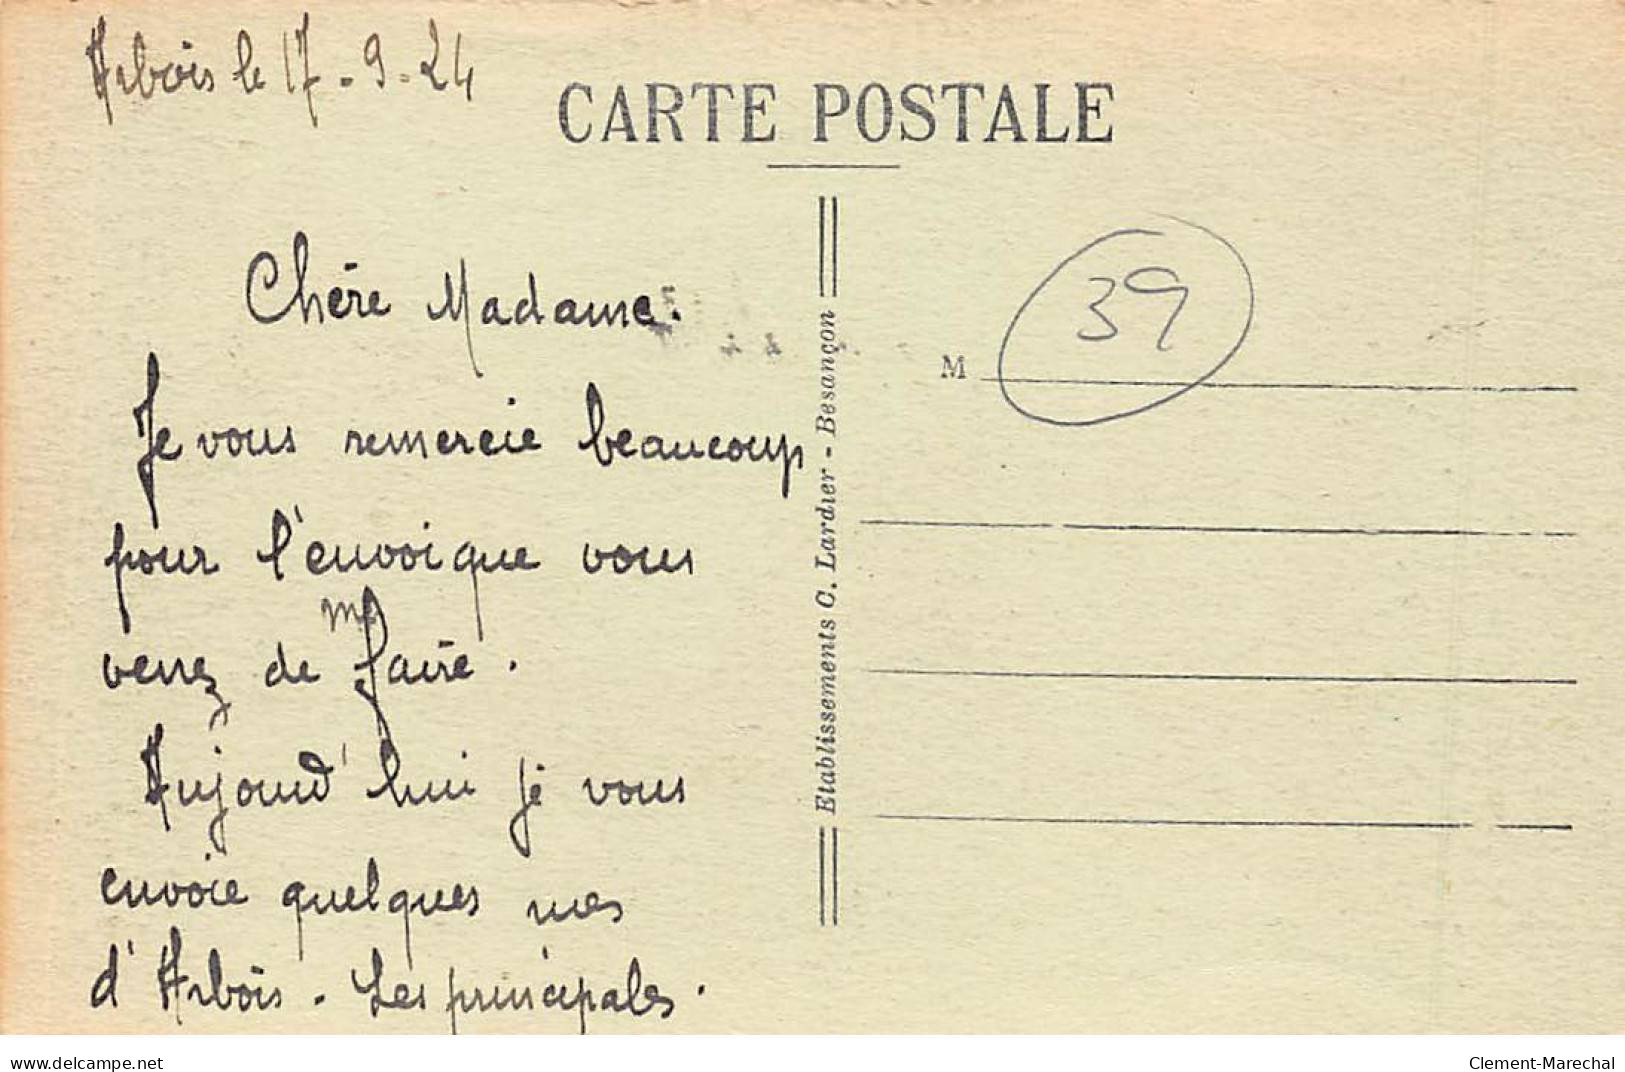 Arbois le 17-9-24
CARTE POSTALE
Chère Madame.
Je vous remercie beaucoup
pour l'envoi que vous
me
venez de faire.
Aujourd'hui je vous
envoie quelques vues
d'Arbois. Les principales.
Etablissements C. Lardier - Besançon
39
M
www.delcampe.net
Clement-Marechal